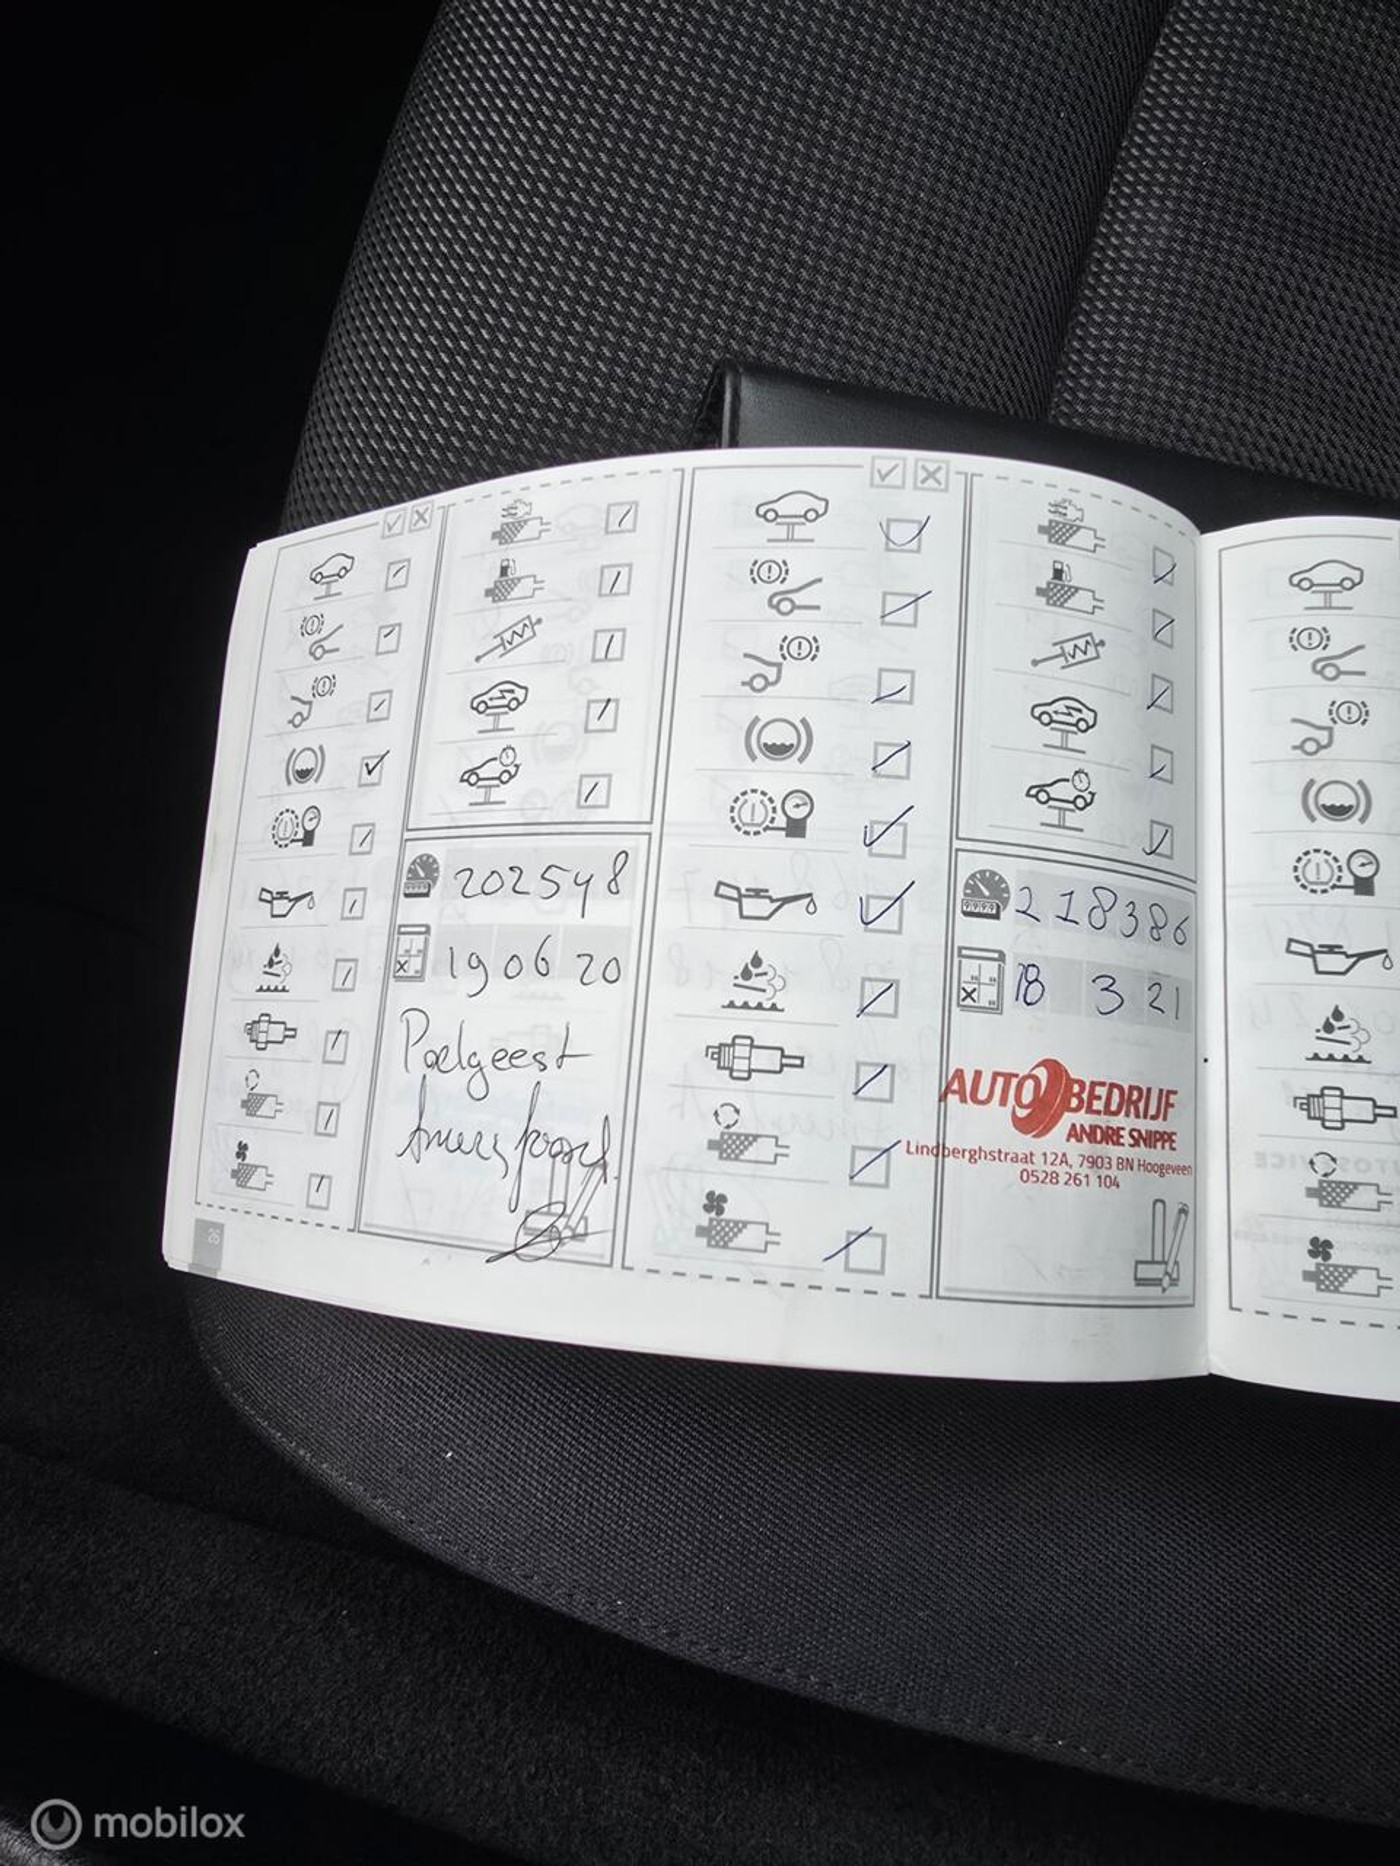 202548
19 06 20
Poelgeest
Amersfoort
26
218386
18 3 21
AUTOBEDRIJF
ANDRE SNIPPE
Lindberghstraat 12A, 7903 BN Hoogeveen
0528 261 104
mobilox